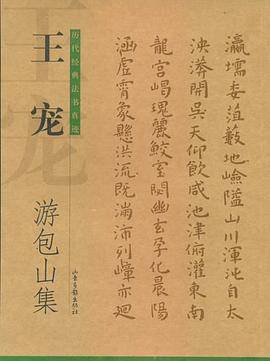 瀛壖委菹藪地嶮隘山川渾沌自太
泱漭開吳天仰飲咸池津俯灌東南
龍宮嵑瑰麗鮫室閟幽玄孕化晨陽
涵虛霄象懸洪流既滿沛列嶂亦迴
历代经典法书真迹
王宠
游包山集
山东画报出版社
王宠